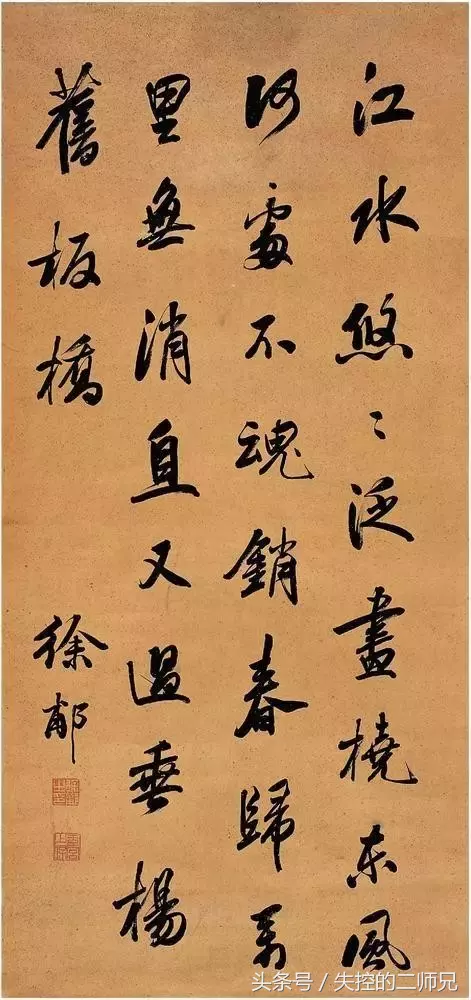 江水悠〻泛畫橈東風
何處不魂銷春歸萬
里無消息又過垂楊
舊板橋
徐郙
头条号/失控的二师兄